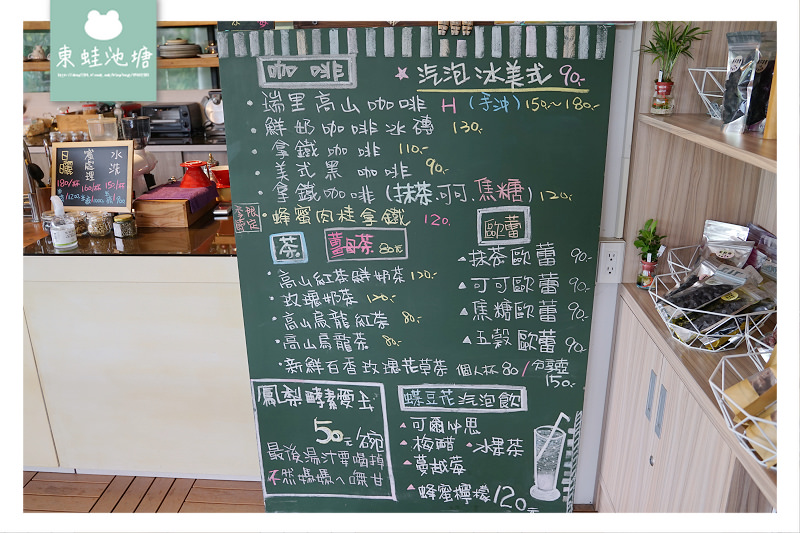 東蛙池塘
咖啡
★汽泡冰美式 90.-
・瑞里高山咖啡 H (手沖) 150.~180.-
・鮮奶咖啡冰磚 130.-
・拿鐵咖啡 110.-
・美式黑咖啡 90.-
・拿鐵咖啡 (抹茶.可可.焦糖) 120.-
限定
蜂蜜肉桂拿鐵 120.
茶
薑母茶 80元
・高山紅茶鮮奶茶 120.-
・玫瑰奶茶 120.-
・高山烏龍紅茶 80.-
・高山烏龍茶 80.-
・新鮮百香玫瑰花草茶 個人杯 80 / 分享壺 150.-
歐蕾
▲抹茶歐蕾 90.-
▲可可歐蕾 90.-
▲焦糖歐蕾 90.-
▲五穀歐蕾 90.-
鳳梨酵素愛玉
50元/碗
最後湯汁要喝掉
不然媽媽ㄟ嘸甘
蝶豆花汽泡飲
▲可爾必思
▲梅醋 ▲水果茶
▲蔓越莓
▲蜂蜜檸檬 120元
日曬 蜜處理 水洗
180/杯 160/杯 150/杯